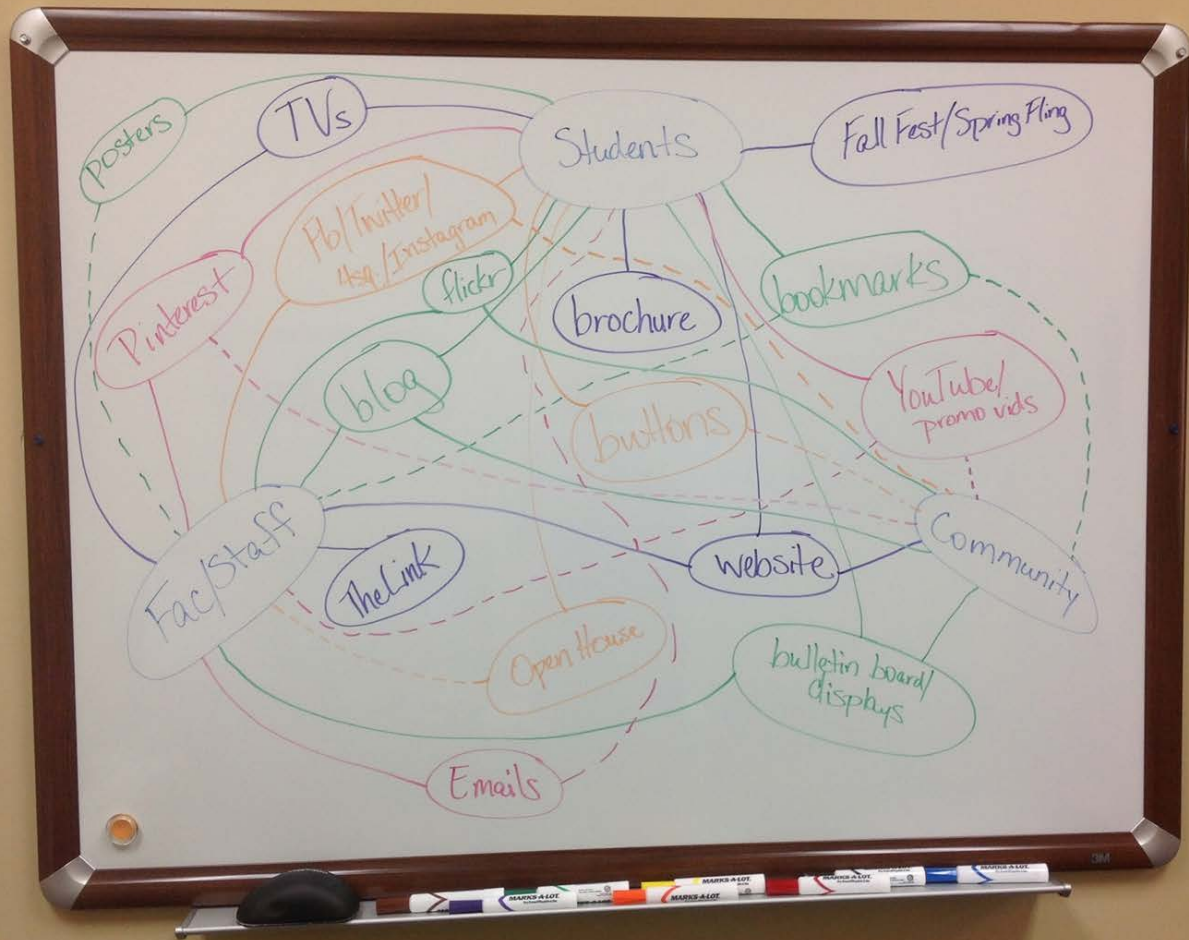 posters
TVs
Students
Fall Fest/Spring Fling
Fb/Twitter/
4sq./Instagram
flickr
Pinterest
brochure
bookmarks
blog
buttons
YouTube/
promo vids
Fac/Staff
TheLink
website
Community
Open House
bulletin board/
displays
Emails
3M
MARKS-A-LOT
MARKS-A-LOT
MARKS-A-LOT
MARKS-A-LOT
MARKS-A-LOT